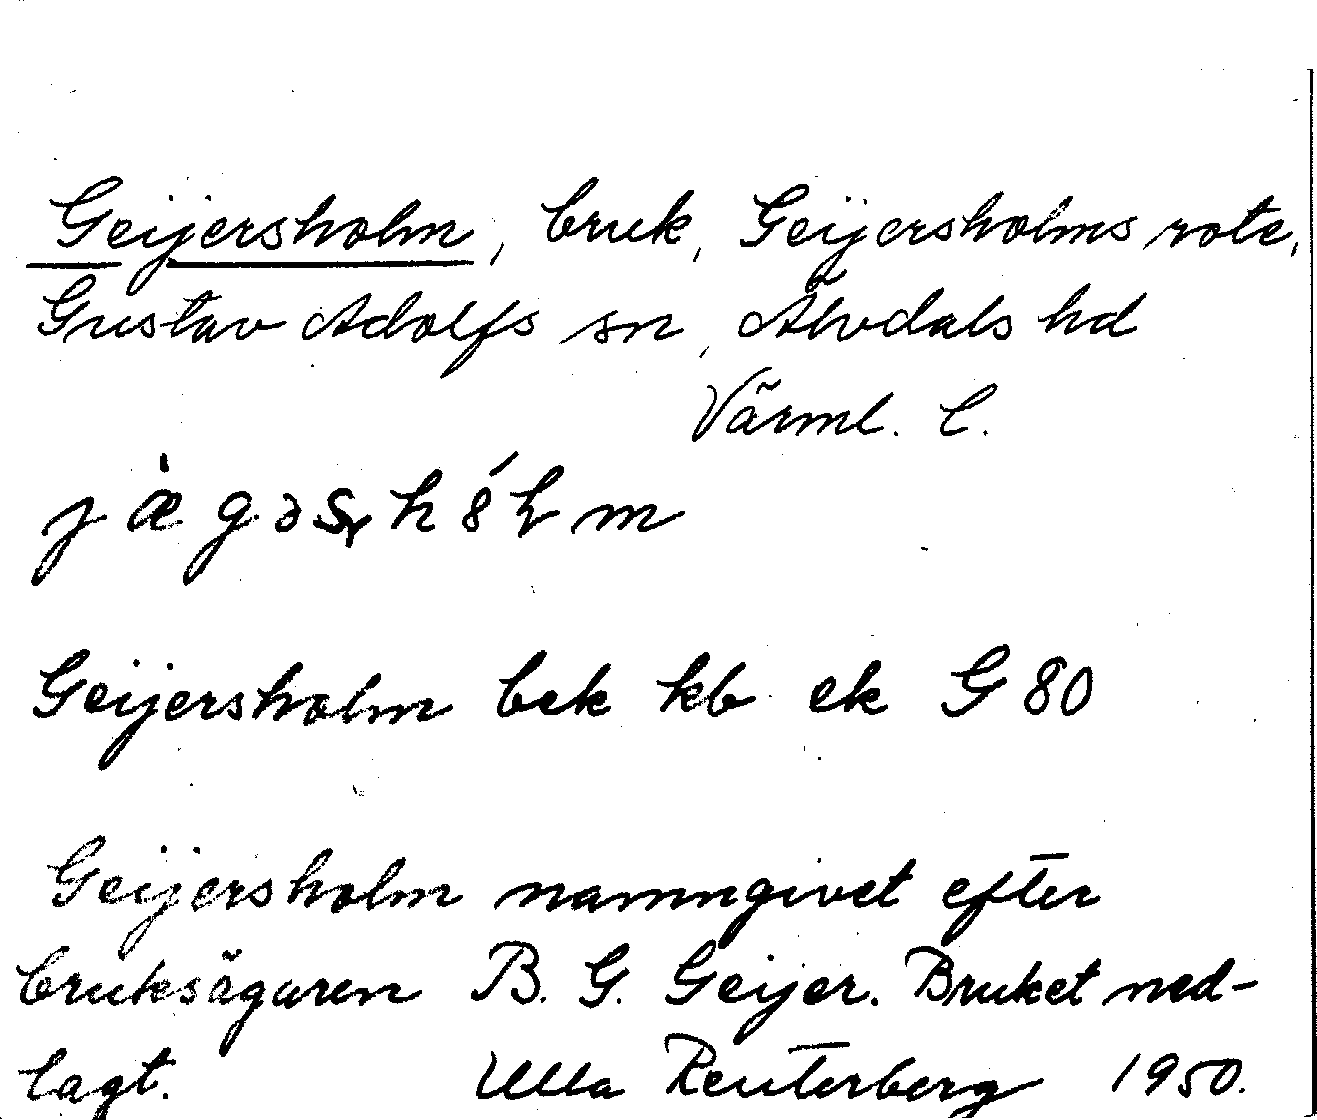 Geijersholm, bruk, Geijersholms rote,
Gustav Adolfs sn, Älvdals hd
Värml. l.
Geijersholm bek kb ek G 80
Geijersholm namngivet efter
bruksägaren B. G. Geijer. Bruket ned-
lagt. Ulla Reuterberg 1950.